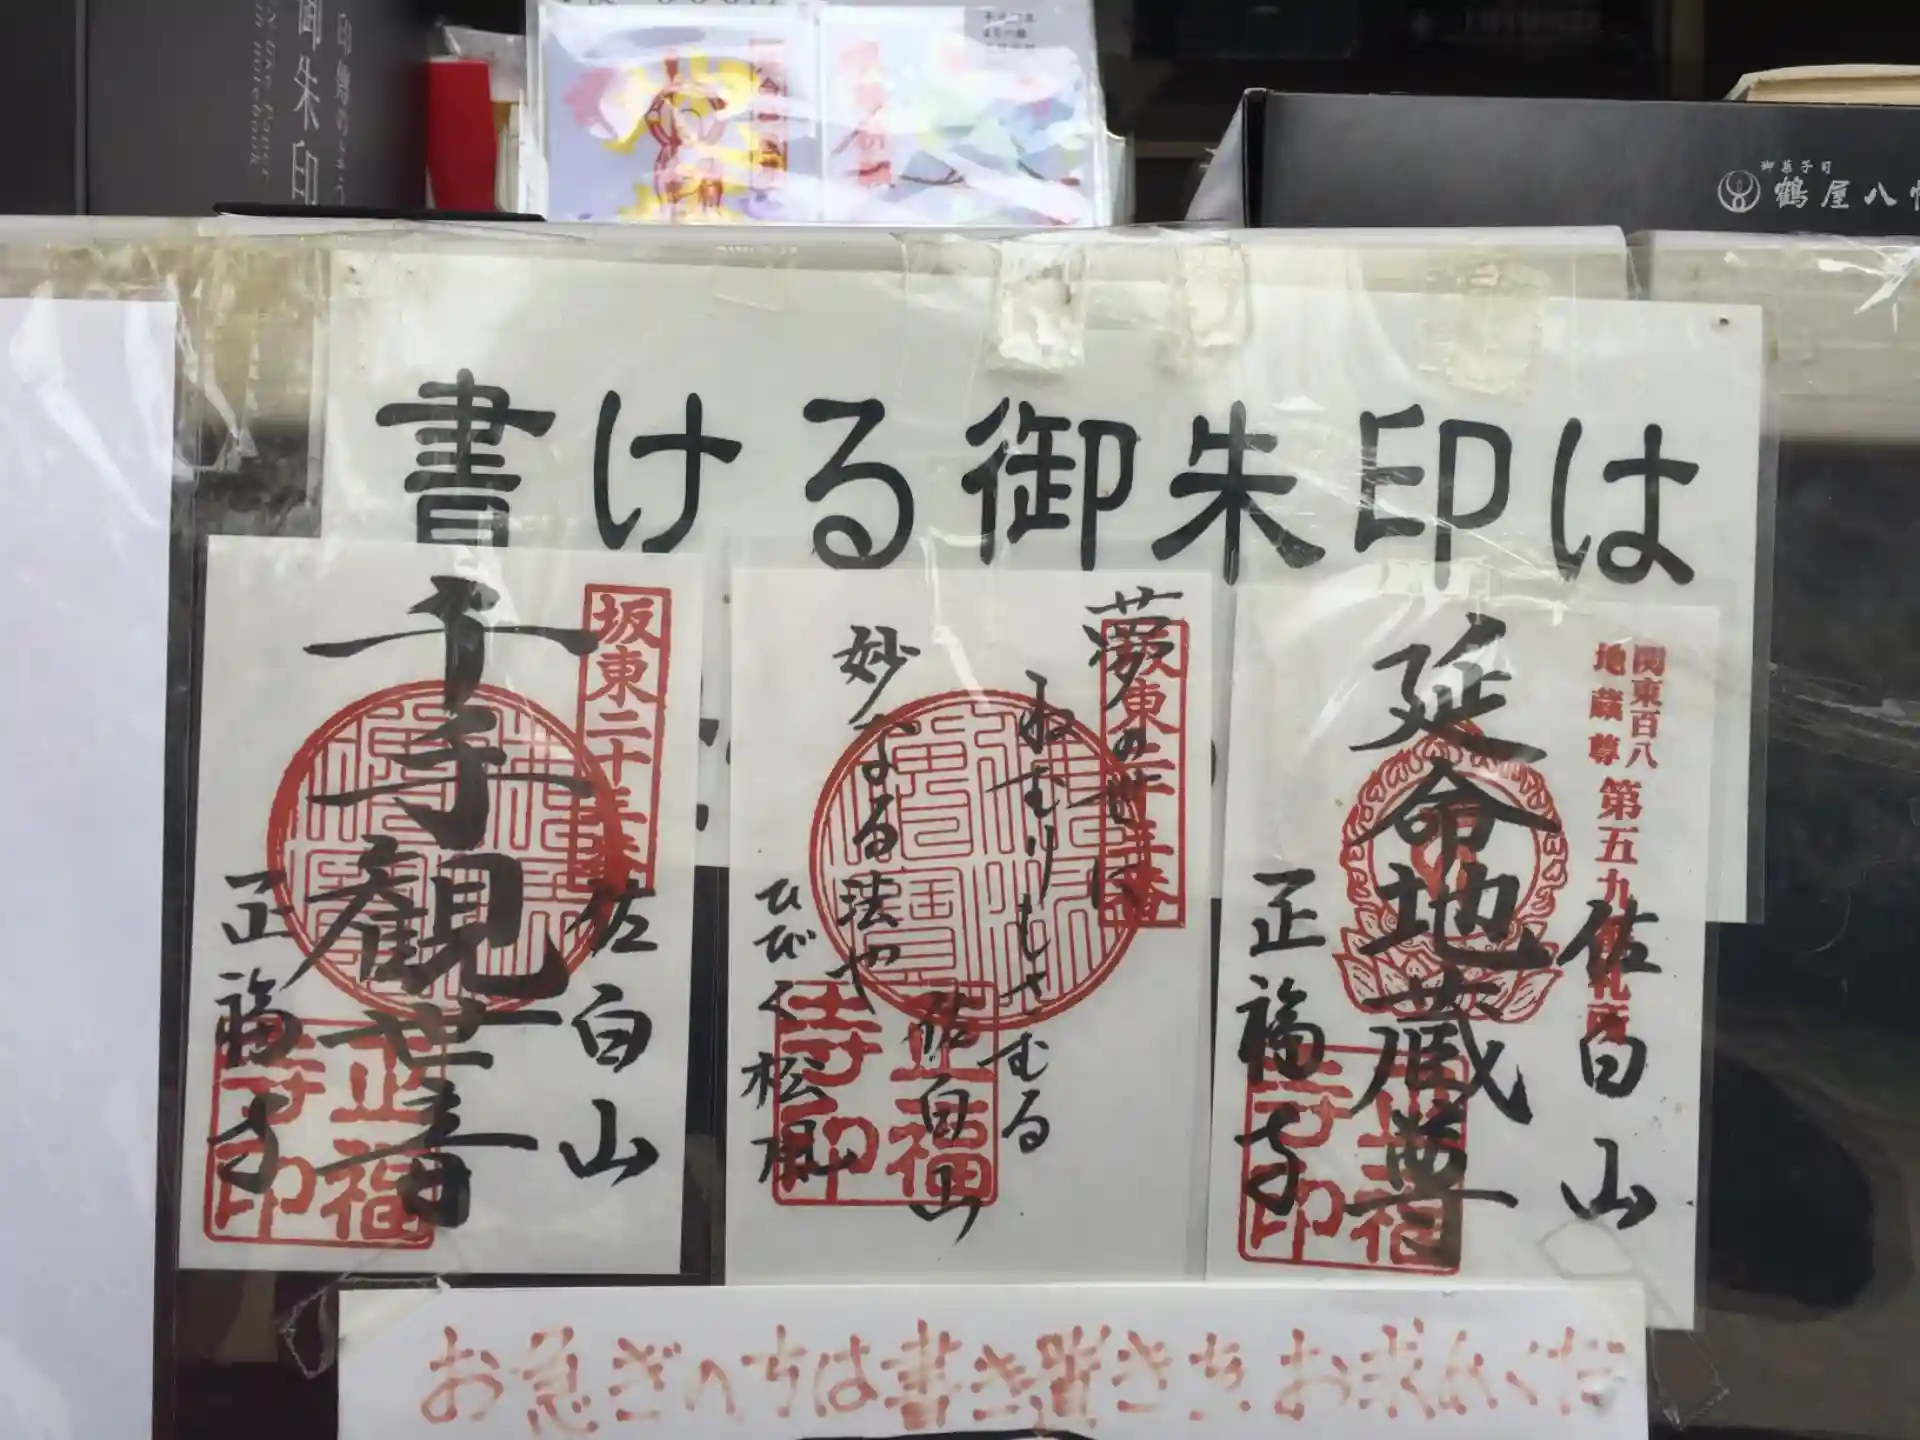 御朱印
御菓子司
鶴屋八幡
書ける御朱印は
坂東二十三番
千手観世音
佐白山
正福寺
正福寺印
夢の世に
ねむりもさむる
佐白山
妙なる法や
ひびく松風
正福寺印
関東百八
地蔵尊
第五九番札所
延命地蔵尊
佐白山
正福寺
お急ぎの方は書き置きをお求めくだ